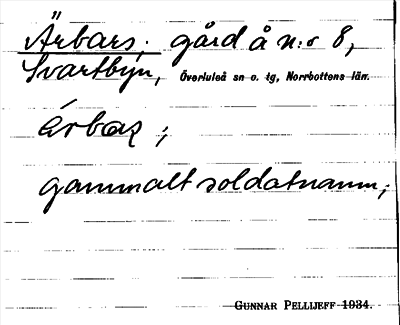 Ärbars, gård å n:o 8,
Svartbyn, Överluleå sn o. tg, Norrbottens län.
ärbaʂ ;
gammalt soldatnamn;
GUNNAR PELLIJEFF 1934.